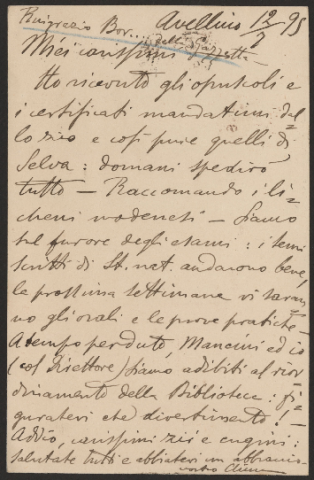 Ringrazio Bor... della gazzetta
Avellino 12/7 95
Miei carissimi
Ho ricevuto gli opuscoli e
i certificati mandatimi dal=
lo zio e così pure quelli di
Selva: domani spedirò
tutto — Raccomando i li=
cheni modenesi — Siamo
sul furore degli esami: i temi
scritti di St. nat. andarono bene,
le prossima settimana vi saran=
no gli orali e le prove pratiche —
A tempo perduto, Mancini ed io
(col Direttore) siamo adibiti al rior=
dinamento della Biblioteca: fi=
guratevi che divertimento! —
Addio, carissimi zii e cugini:
salutate tutti e abbiatevi un abbraccio
vostro